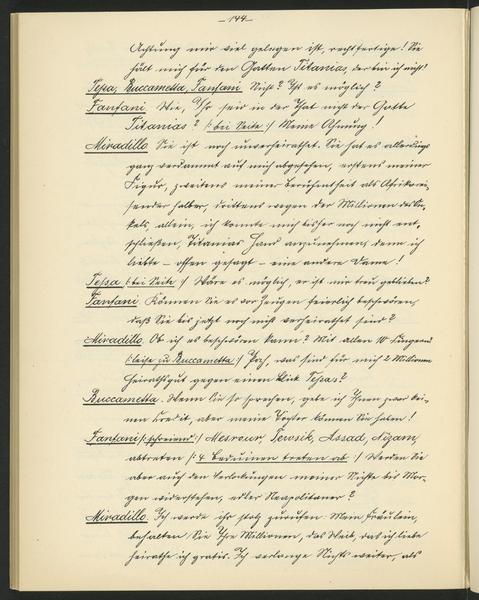 — 144 —
Achtung mir viel gelegen ist, rechtfertige! Sie
hält mich für den Gatten Titanias, der bin ich nicht!
Tessa, Buccametta, Fanfani Nicht? Ist es möglich?
Fanfani Wie, Ihr seid in der That nicht der Gatte
Titanias? /: bei Seite :/ Meine Ahnung!
Miradillo Sie ist noch unverheirathet. Sie hat es allerdings
ganz verdammt auf mich abgesehen, erstens meiner
Figur, zweitens meiner Berühmtheit als Afrikarei-
sender halber, drittens wegen der Millionen des On-
kels, allein, ich konnte mich bisher noch nicht ent-
schließen, Titanias Hand anzunehmen, denn ich
liebte – offen gesagt – eine andere Dame!
Tessa /: bei Seite :/ Wäre es möglich, er ist mir treu geblieben?
Fanfani Können Sie es vor Zeugen feierlich beschwören,
daß Sie bis jetzt noch nicht verheirathet sind?
Miradillo. Ob ich es beschwören kann? Mit allen 10 Fingern!
/: leise zu Buccametta :/ Pah, was sind für mich 2 Millionen
Heirathsgut gegen einen Blick Tessas?
Buccametta. Wenn Sie so sprechen, gebe ich Ihnen zwar kei-
nen Kredit, aber meine Tochter können Sie haben!
Fanfani /: schreiend :/ Mesrour, Terosik, Assad, Nizam,
abtreten /: 4 Beduinen treten ab :/ Werden Sie
aber auch den Verlokungen meiner Nichte bis Mor-
gen widerstehen, edler Neapolitaner?
Miradillo. Ich werde ihr stolz zurufen: Mein Fräulein,
behalten Sie Ihre Millionen, das Weib, das ich liebe
heirathe ich gratis. Ich verlange Nichts weiter, als